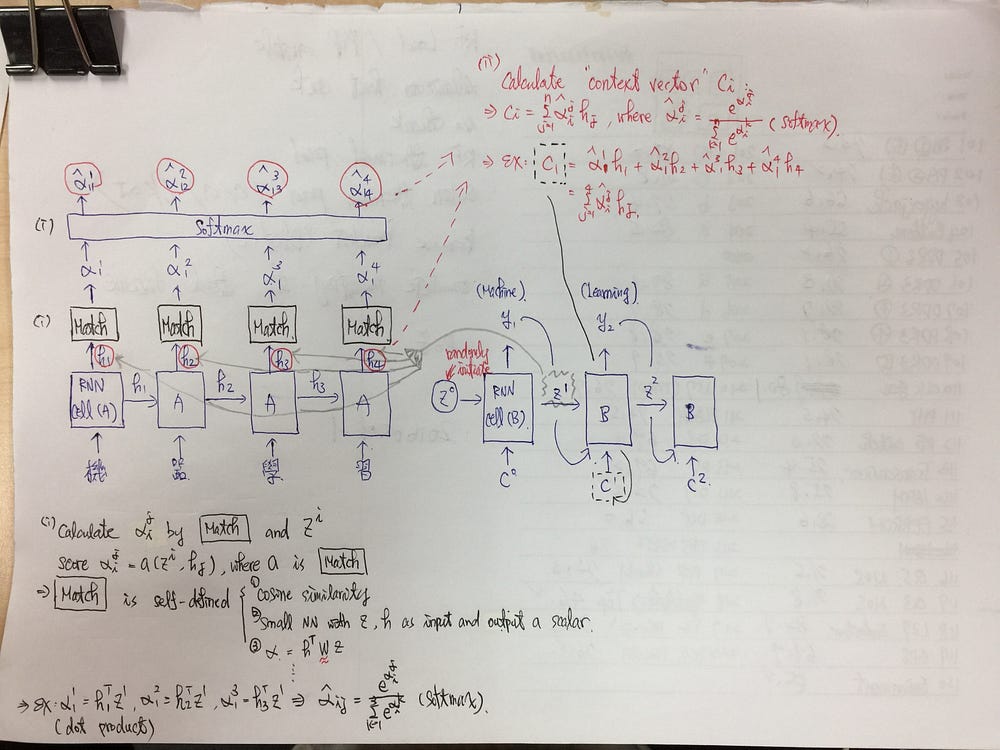 (ii)
Calculate "context vector" Ci :
⇒ Ci = Σ_{j=1}^{n} α̂_i^j h_j , where α̂_i^j = e^{α_i^j} / Σ_{k=1}^{n} e^{α_i^k} (softmax).
⇒ EX: C1 = α̂_1^1 h1 + α̂_1^2 h2 + α̂_1^3 h3 + α̂_1^4 h4
= Σ_{j=1}^{4} α̂_1^j h_j.
α̂_11^1 α̂_12^2 α̂_13^3 α̂_14^4
(i) Softmax
α_1^1 α_1^2 α_1^3 α_1^4
(i) Match Match Match Match
h1 h2 h3 h4
RNN cell (A) h1 A h2 A h3 A
機 器 學 習
(Machine) (Learning)
y1 y2
randomly
initiate
z^0 RNN cell (B) z^1 B z^2 B
C^0 C^1 C^2
(i) Calculate α_i^j by Match and z^i
score α_i^j = a(z^i, h_j), where a is Match
⇒ Match is self-defined
① Cosine similarity
② Small NN with z, h as input and output a scalar.
③ α = h^T W z
⇒ EX: α_1^1 = h_1^T z^1, α_1^2 = h_2^T z^1, α_1^3 = h_3^T z^1 ⇒ α̂_ij = e^{α_i^j} / Σ_{k=1}^{3} e^{α_i^k} (softmax).
(dot products)